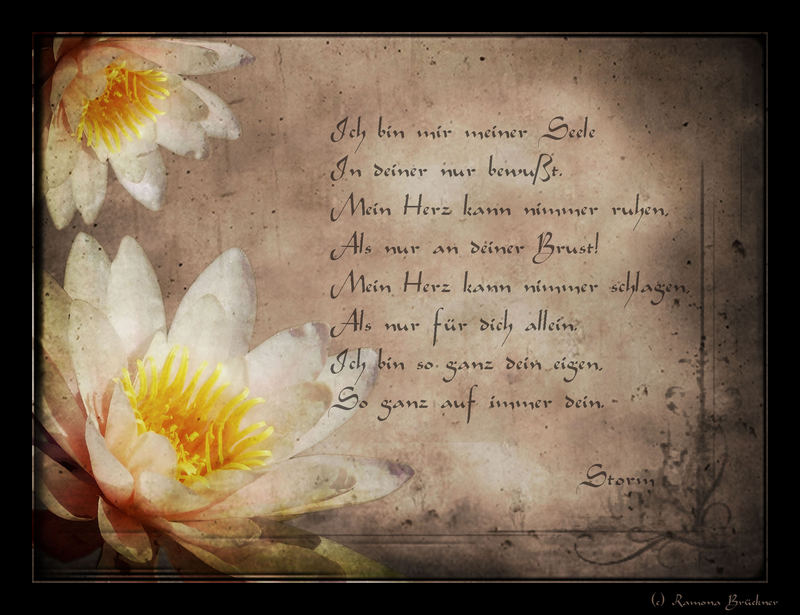 Ich bin mir meiner Seele
In deiner nur bewußt.
Mein Herz kann nimmer ruhen,
Als nur an deiner Brust!
Mein Herz kann nimmer schlagen,
Als nur für dich allein.
Ich bin so ganz dein eigen,
So ganz auf immer dein.
Storm
(c) Ramona Brückner